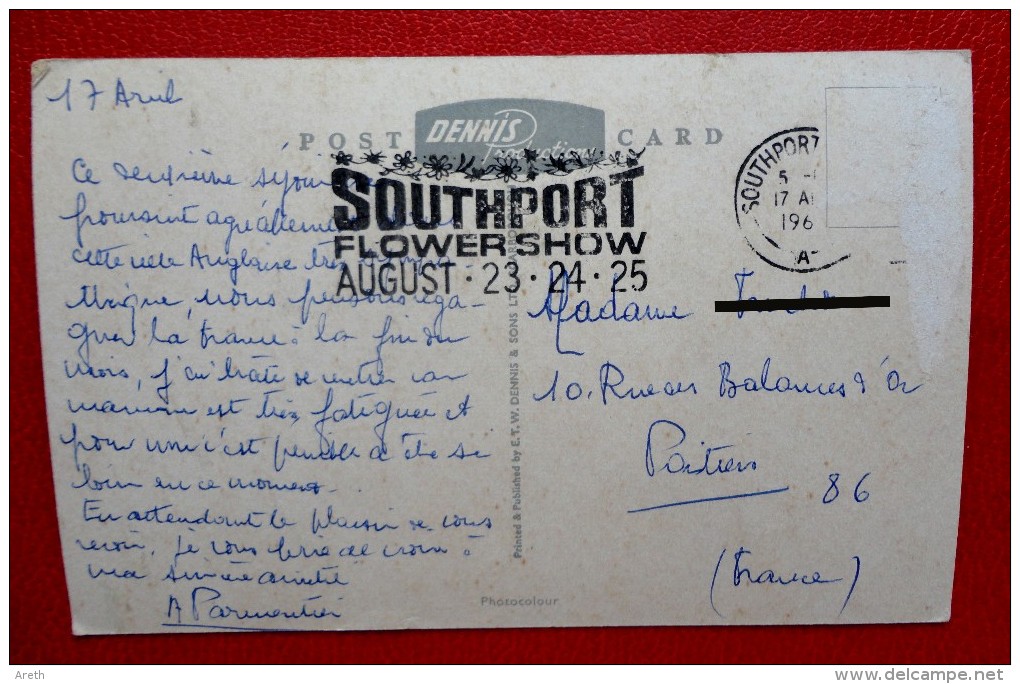 17 Avril
POST CARD
DENNIS
Productions
SOUTHPORT
FLOWER SHOW
AUGUST · 23 · 24 · 25
SOUTHPORT
5
17 A
196
A
Ce deuxième séjour
poursuit agréablement
cette ville Anglaise très
nous pensons rega-
gner la France à la fin du
mois, j'ai hâte de rentrer car
maman est très fatiguée et
pour moi c'est pénible d'être si
loin en ce moment.
En attendant le plaisir de vous
revoir, je vous prie de croire à
ma sincère amitié
A Parmentier
Madame
10. Rue des Balances d'Or
Poitiers
86
(France)
Printed & Published by E.T.W. DENNIS & SONS LT
Photocolour
Areth
delcampe.net